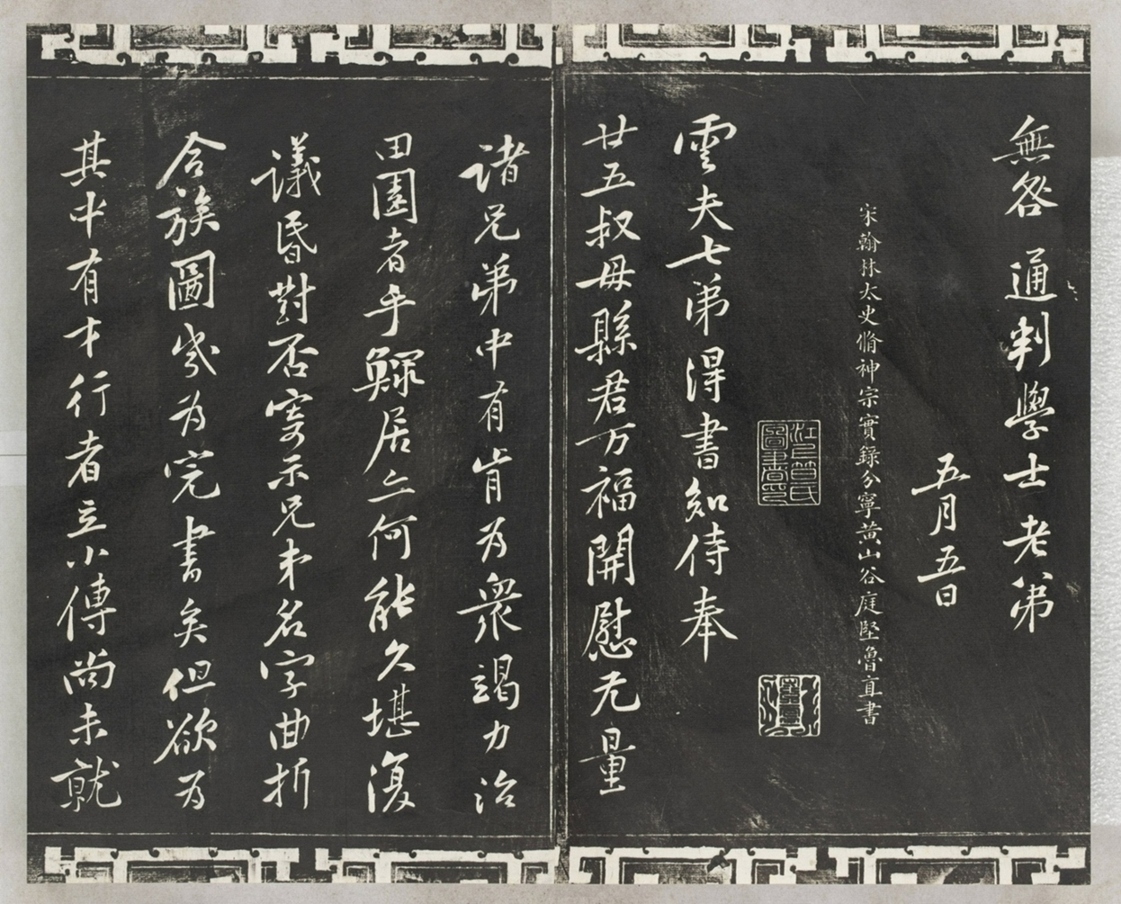 無咎通判學士老弟
五月五日
宋翰林太史脩神宗實錄分寧黃山谷庭堅魯直書
雲夫七弟得書知侍奉
廿五叔母縣君万福開慰无量
諸兄弟中有肯為衆竭力治
田園者乎鰥居亦何能久堪復
議昏對否寄示兄弟名字曲折
合族圖幾為完書矣但欲為
其中有才行者立小傳尚未就